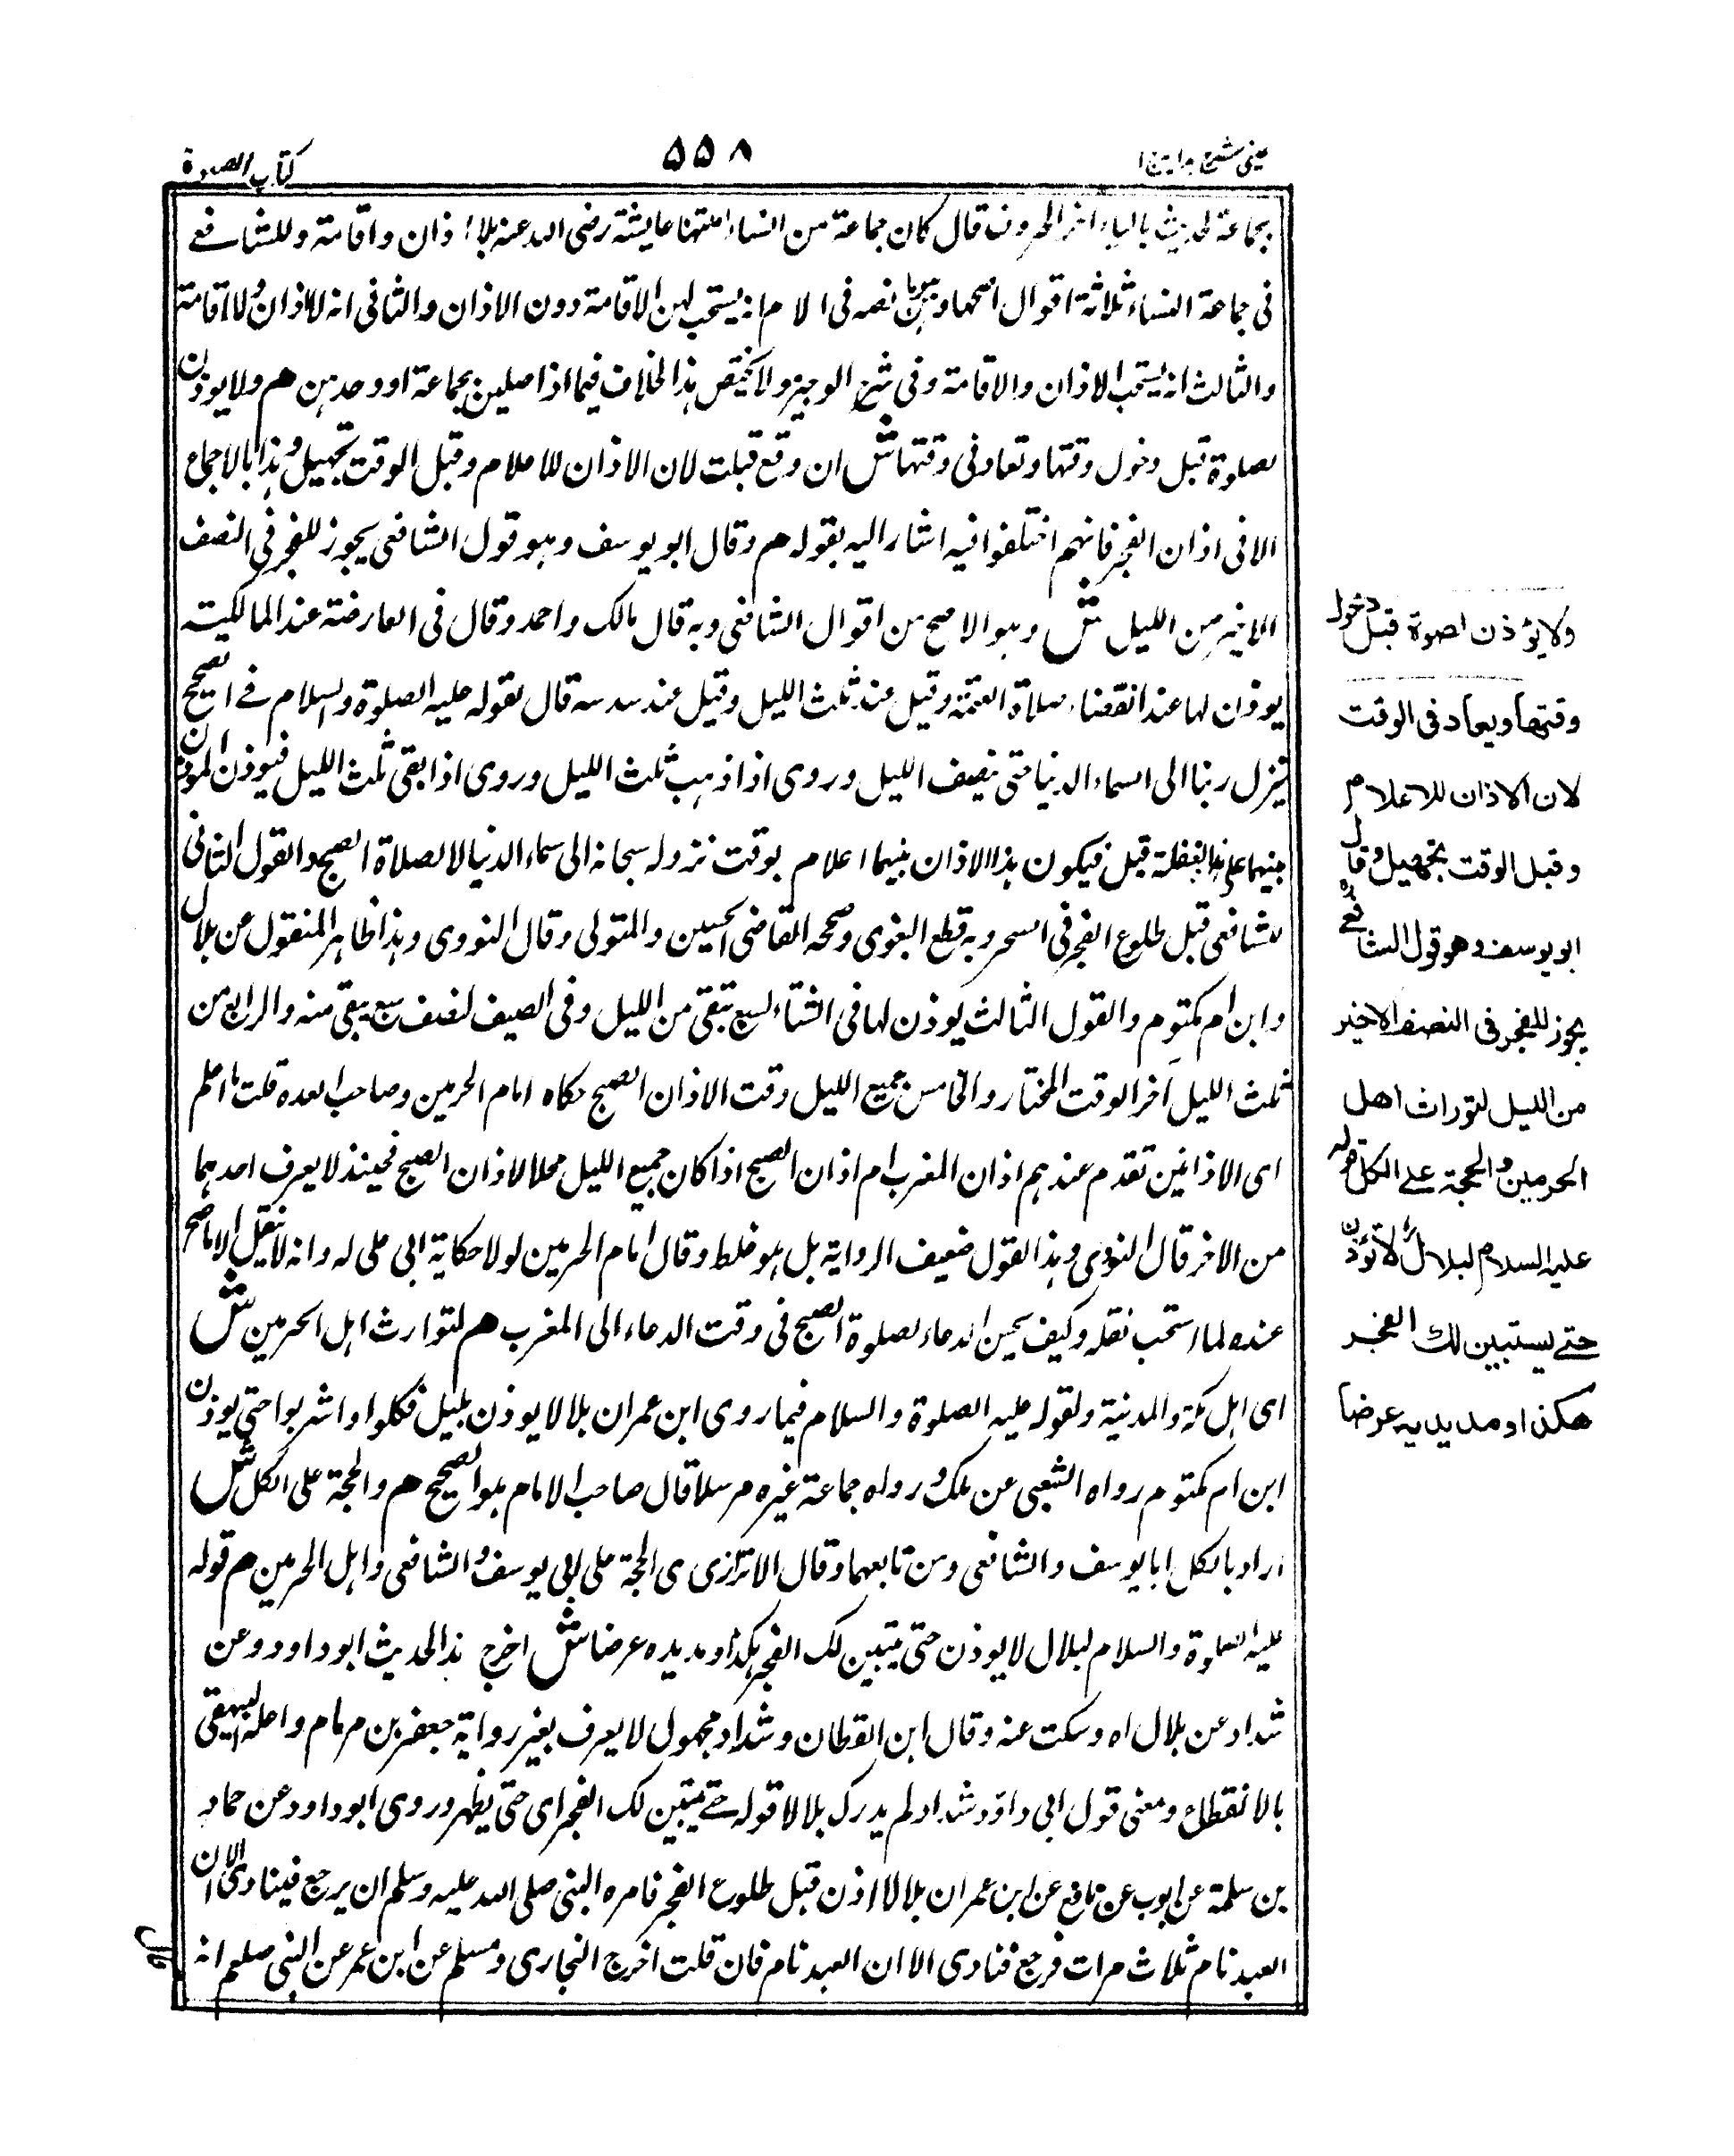 عینی شرح ہدایہ ج ۱
۵۵۸
کتاب الصلوۃ
بجماعة لحديث بالياء اخر الحروف قال كان جماعة من النساء امتهنا عايشة رضى الله عنه بلا اذان واقامة وللشافعے
فى جماعة النساء ثلاثة اقوال اصحها وبہن نصه فى الام انه يستحب لهن الاقامة دون الاذان والثانى انه لا اذان ولا اقامة
والثالث انه يستحب الاذان والاقامة وفى شرح الوجيز ولا يختص هذا الخلاف فيما اذا صلين بجماعة او وحدهن هم ولا يوذن
لصلوة قبل دخول وقتها وتعاد فى وقتها ش ان وقع قبلت لان الاذان للاعلام وقبل الوقت تجهيل وهذا بالاجماع
الا فى اذان الفجر فانهم اختلفوا فيه اشار اليه بقوله هم وقال ابو يوسف وهو قول الشافعى يجوز للفجر فى النصف
الاخير من الليل ش وهو الاصح من اقوال الشافعى وبه قال مالك واحمد وقال فى العارضة عند المالكية
يوذن لها عند انقضاء صلاة العتمة وقيل عند ثلث الليل وقيل عند سدسه قال لقوله عليه الصلوة والسلام فے الصحيح
ينزل ربنا الى السماء الدنيا حتى نصف الليل وروى اذا ذهب ثلث الليل وروى اذا بقى ثلث الليل فيوذن الموذن
قبل فيكون هذا الاذان بينهما اعلام بوقت نزوله سبحانه الى سماء الدنيا لا لصلاة الصبح والقول الثانى
للشافعى قبل طلوع الفجر فى السحر وبه قطع البغوى وصححه القاضى الحسين والمتولى وقال النووى وهذا ظاهر المنقول عن بلال
وابن ام مكتوم والقول الثالث يوذن لها فى الشتاء لسبع تبقى من الليل وفى الصيف لنصف سبع يبقى منه والرابع من
ثلث الليل آخر الوقت المختار والخامس جميع الليل وقت الاذان الصبح حكاه امام الحرمين وصاحب العدة قلت ما اعلم
اى الاذانين تقدم عندهم اذان المغرب ام اذان الصبح اذا كان جميع الليل محلا لاذان الصبح فحينئذ لا يعرف احدهما
من الاخر قال النووى وهذا القول ضعيف الرواية بل هو غلط وقال امام الحرمين لولا حكاية ابى على له وانه لا ينقل الا ما صح
عنده لما استحب نقله وكيف يحسن الدعاء لصلوة الصبح فى وقت الدعاء الى المغرب هم لتوارث اهل الحرمين ش
اى اهل مكة والمدينة ولقوله عليه الصلوة والسلام فيما روى ابن عمر ان بلالا يوذن بليل فكلوا واشربوا حتى يوذن
ابن ام مكتوم رواه الشعبى عن ملك ورواه جماعة غيره مرسلا قال صاحب الامام هو الصحيح هم والحجة على الكل ش
اراد بالكل ابا يوسف والشافعى ومن تابعهما وقال الاترازى ى الحجة على ابى يوسف والشافعى واهل الحرمين هم قوله
عليه الصلوة والسلام لبلال لا يوذن حتى يتبين لك الفجر هكذا ومد يده عرضا ش اخرج هذا الحديث ابو داود وعن
شداد عن بلال اه وسكت عنه وقال ابن القطان وشداد مجهول لا يعرف بغير رواية جعفر بن مرمام واعله البيهقى
بالانقطاع ومعنى قول ابى داؤد شداد لم يدرك بلالا قوله حتے يتبين لك الفجر اى حتى يظهر وروى ابو داود عن حماد
بن سلمة عن ايوب عن نافع عن ابن عمر ان بلالا اذن قبل طلوع الفجر فامره النبى صلى الله عليه وسلم ان يرجع فينادى الا ان
العبد نام ثلاث مرات فرجع فنادى الا ان العبد نام فان قلت اخرج البخارى ومسلم عن ابن عمر عن النبى صلعم انه
قال
ولا يؤذن لصلوة قبل دخول
وقتها ويعاد فى الوقت
لان الاذان للاعلام
وقبل الوقت تجهيل وقال
ابو يوسف وهو قول الشافعے
يجوز للفجر فى النصف الاخير
من الليل لتوارث اهل
الحرمين والحجة علے الكل قوله
عليه السلام لبلال لا تؤذن
حتے يستبين لك الفجر
هكذا ومد يديه عرضا